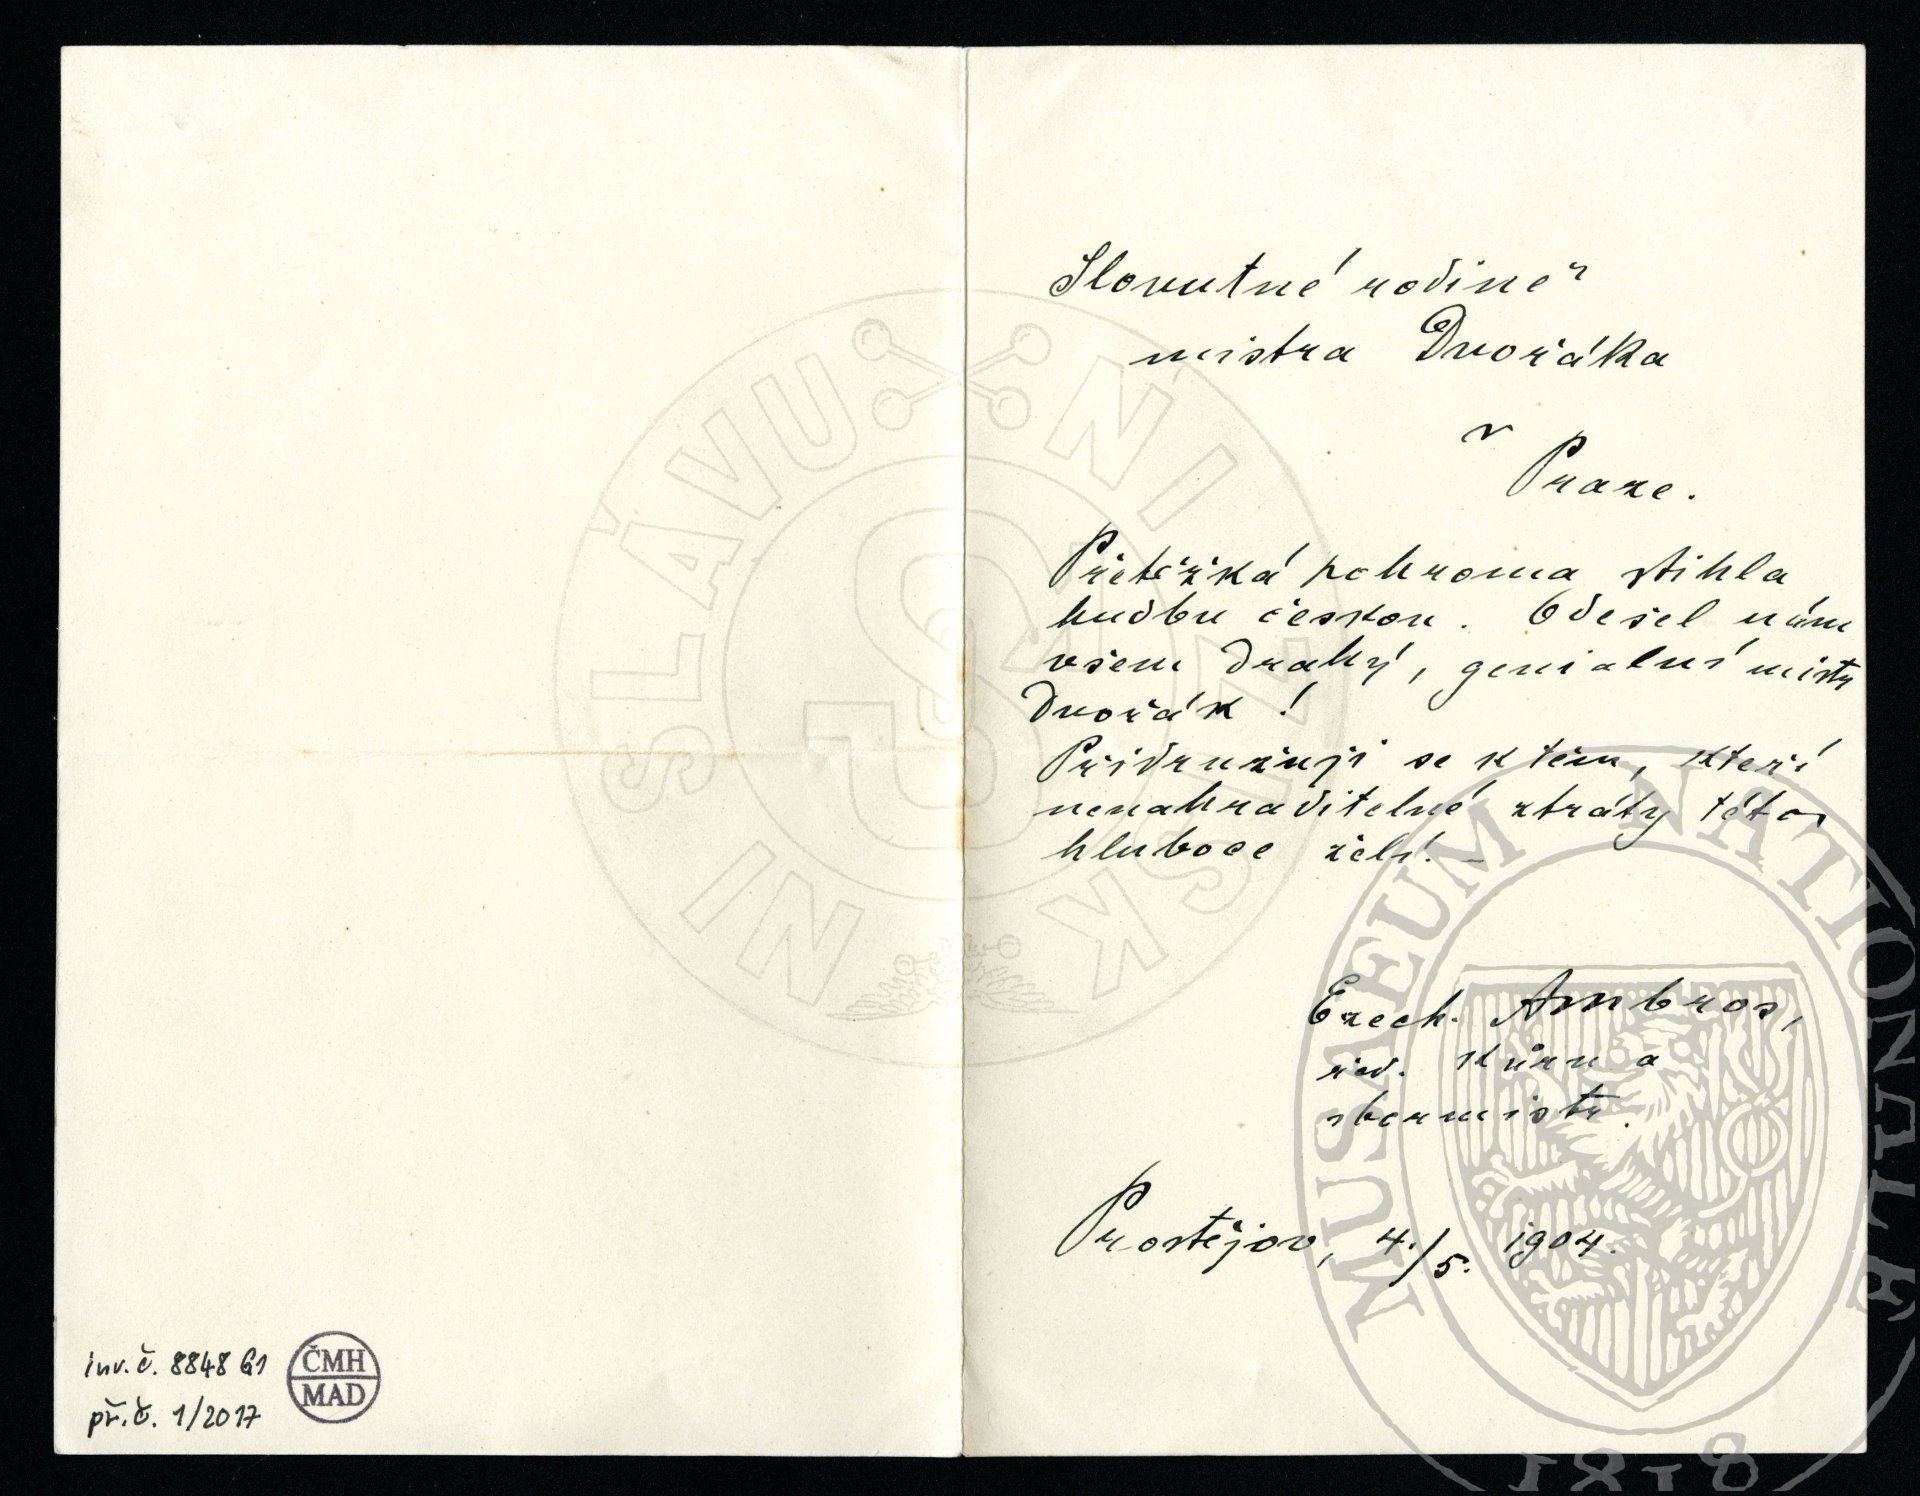 inv. č. 8848 G1
př. č. 1/2017
ČMH
MAD
Slovutné rodině
mistra Dvořáka
v
Praze.
Přetěžká pohroma stihla
hudbu českou. Odešel nám
všem drahý, genialní mistr
Dvořák!
Přidružuji se k těm, kteří
nenahraditelné ztráty této
hluboce želí. –
Ezech. Ambros,
řed. kůru a
sbormistr.
Prostějov, 4./5. 1904.
SLÁVU NI
NI SK
MUSAEUM NATIONALE
1818